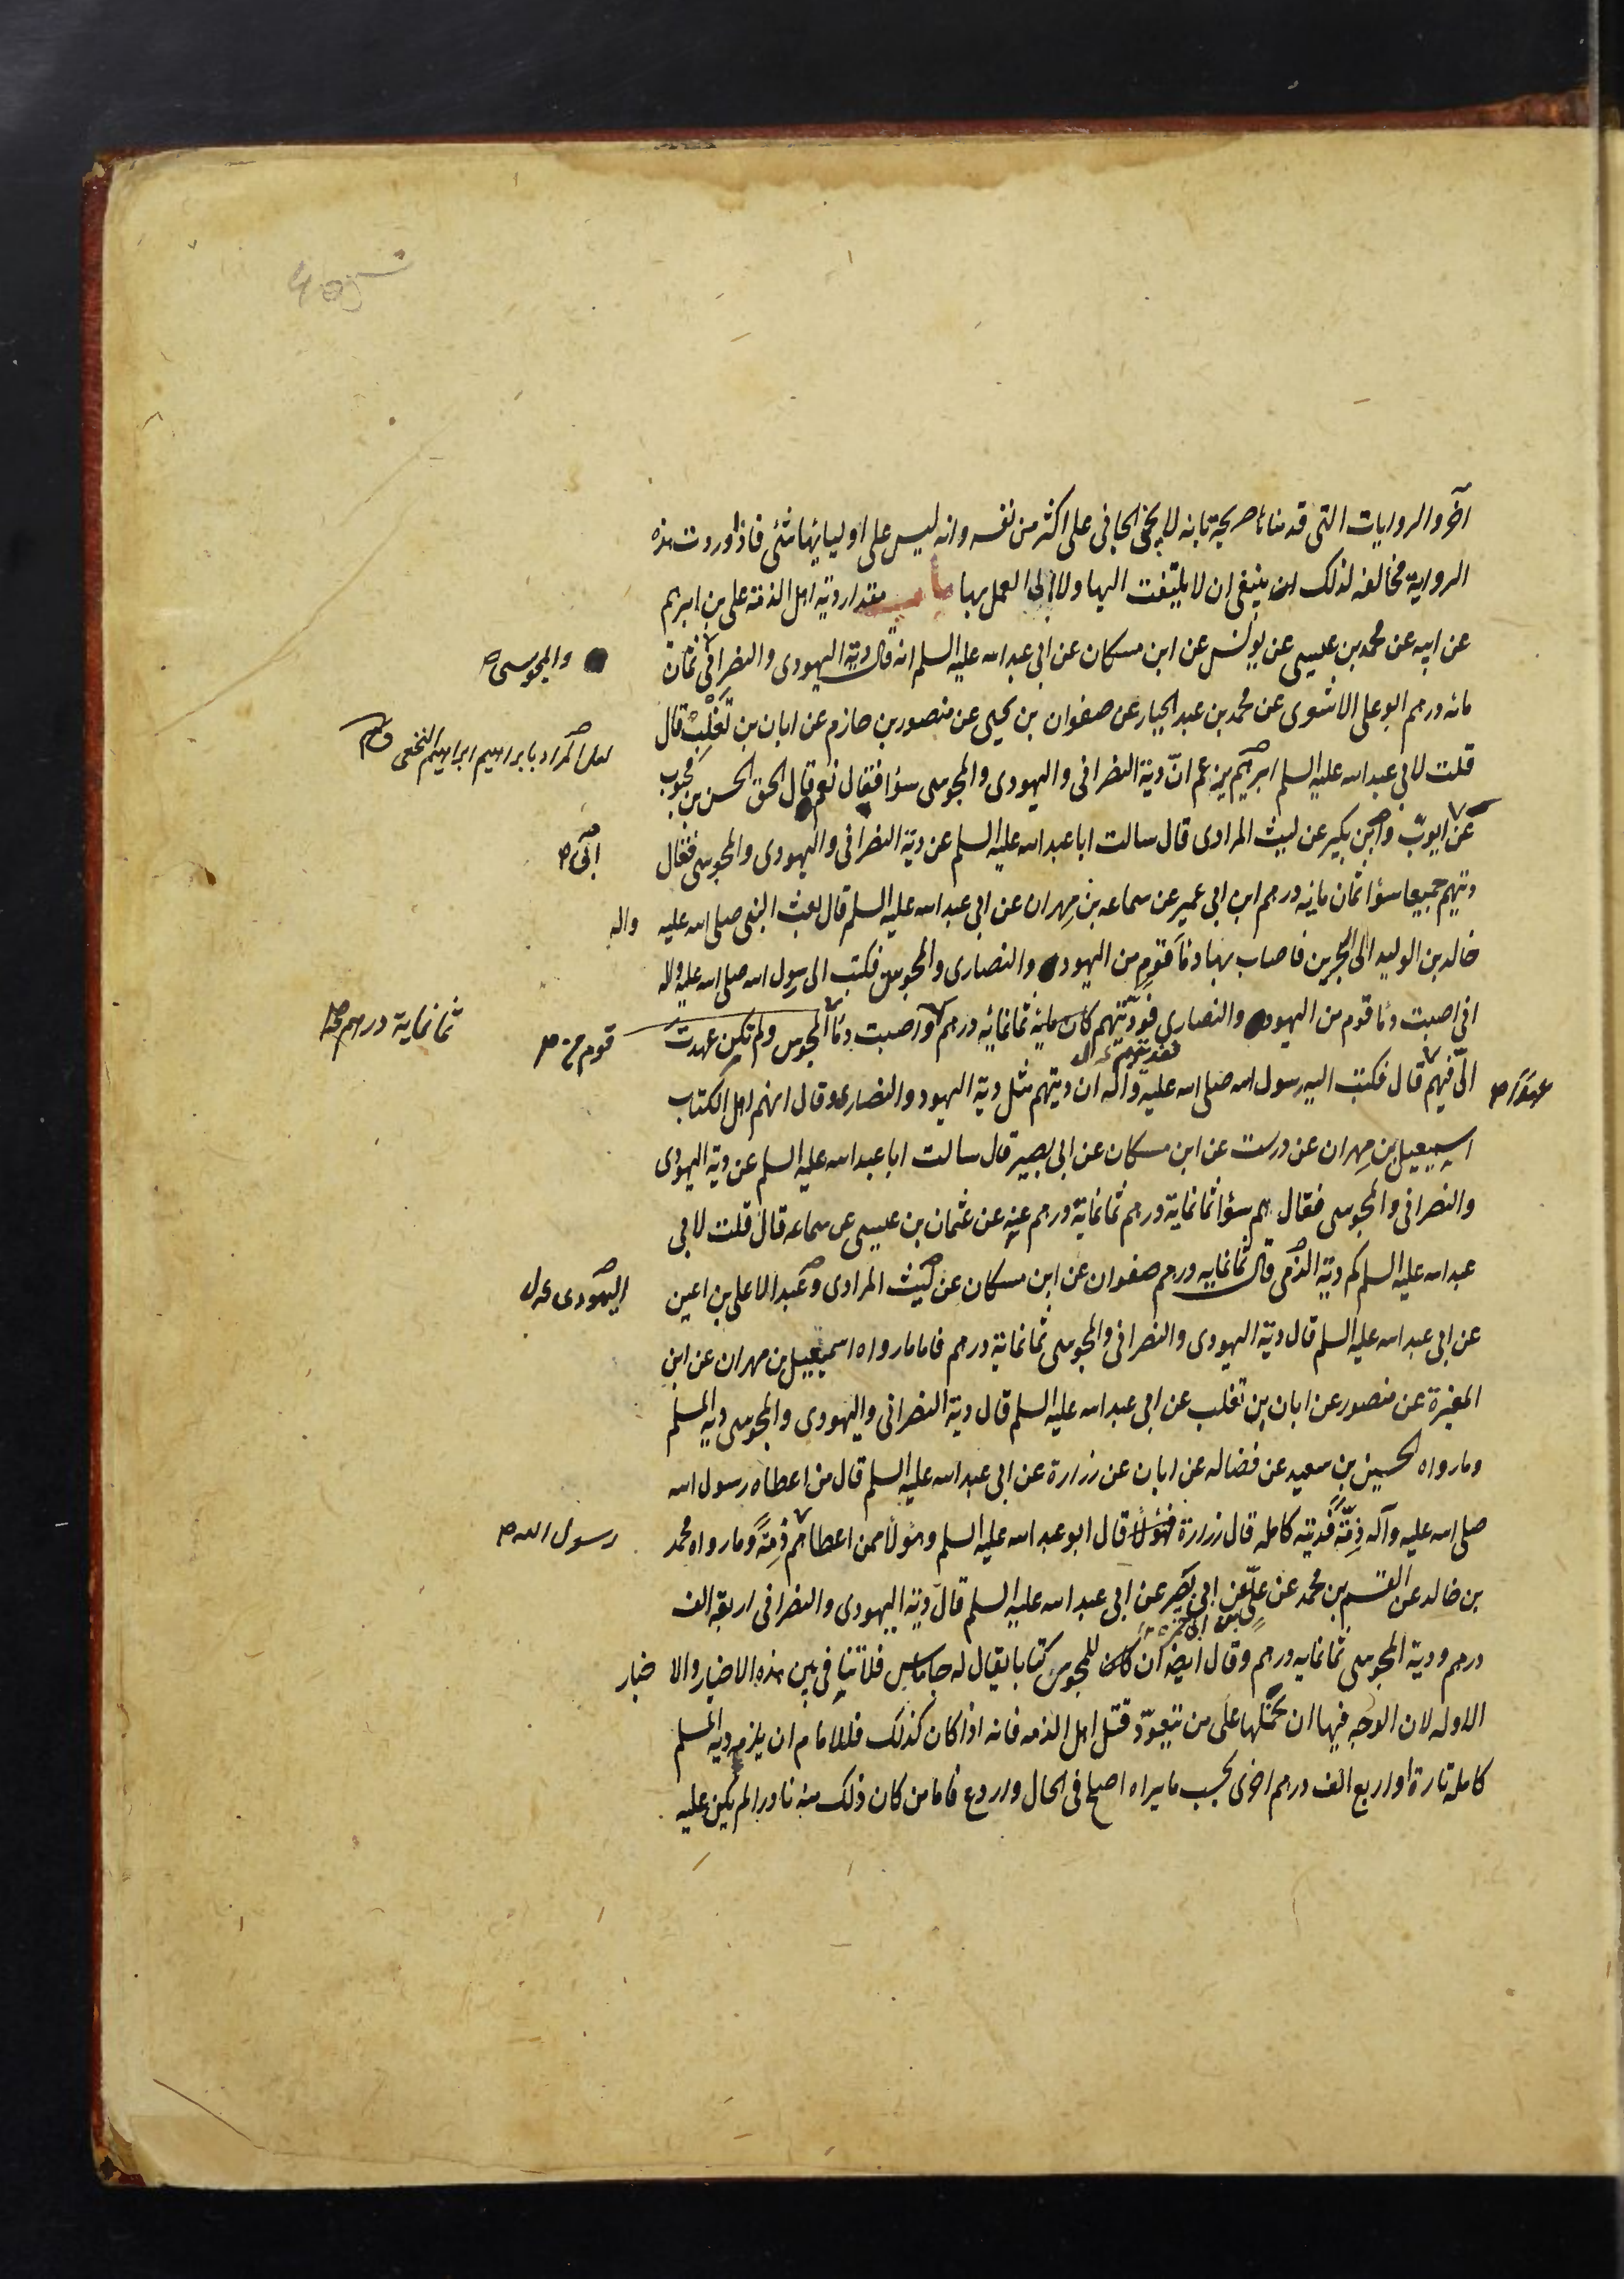 آخر والروايات التى قدمناها صريحة بانه لا يجنى الجانى على اكثر من نفسه وانه ليس على اوليائها شئى فاذا وردت هذه
الرواية مخالفه لذلك ينبغى ان لا يلتفت اليها ولا الى العمل بها باب مقدار دية اهل الذمة على بن ابرهيم
عن ابيه عن محمد بن عيسى عن يونس عن ابن مسكان عن ابى عبد الله عليه السلم انه قال دية اليهودى والنصرانى ثمان
والمجوسى
مائه درهم ابو على الاشعرى عن محمد بن عبد الجبار عن صفوان بن يحيى عن منصور بن حازم عن ابان بن تغلب قال
لعل المراد بابراهيم ابراهيم النخعى
قلت لابى عبد الله عليه السلم ابرهيم يزعم انّ دية النصرانى واليهودى والمجوسى سواء فقال نعم قال الحق الحسن بن محبوب
عن ابى ايوب وابن بكير عن ليث المرادى قال سالت ابا عبد الله عليه السلم عن دية النصرانى واليهودى والمجوسى فقال
ديتهم جميعا سواء ثمان مايه درهم ابن ابى عمير عن سماعه بن مهران عن ابى عبد الله عليه السلم قال بعث النبى صلى الله عليه واله
خالد بن الوليد الى البحرين فاصاب بها دماء قوم من اليهود والنصارى والمجوس فكتب الى رسول الله صلى الله عليه واله
انى اصبت دماء قوم من اليهود والنصارى فوديتهم ثمانمائه درهم واصبت دماء المجوس ولم تكن عهدت
قوم من
ثمانماية درهم
الىّ فيهم قال فكتب اليه رسول الله صلى الله عليه وآله ان ديتهم مثل دية اليهود والنصارى وقال انهم اهل الكتاب
عهدا
اسمعيل بن مهران عن درست عن ابن مسكان عن ابى بصير قال سالت ابا عبد الله عليه السلم عن دية اليهودى
والنصرانى والمجوسى فقال هم سواء ثمانماية درهم ثمانماية درهم عنه عن عثمان بن عيسى عن سماعه قال قلت لابى
عبد الله عليه السلم كم دية الذمى قال ثمانمايه درهم صفوان عن ابن مسكان عن ليث المرادى وعبد الاعلى بن اعين
اليهودى
عن ابى عبد الله عليه السلم قال دية اليهودى والنصرانى والمجوسى ثمانماية درهم فاما ما رواه اسمعيل بن مهران عن ابن
المغيرة عن منصور عن ابان بن تغلب عن ابى عبد الله عليه السلم قال دية النصرانى واليهودى والمجوسى دية المسلم
وما رواه الحسين بن سعيد عن فضاله عن ابان عن زرارة عن ابى عبد الله عليه السلم قال من اعطاه رسول الله
صلى الله عليه وآله ذمّةً فديته كامله قال زرارة فهؤلاء قال ابو عبد الله عليه السلم وهؤلاء ممن اعطاهم ذمّةً وما رواه محمد
رسول الله
بن خالد عن القسم بن محمد عن على بن ابى حمزه عن ابى بصير عن ابى عبد الله عليه السلم قال دية اليهودى والنصرانى اربعة الف
درهم ودية المجوسى ثمانمايه درهم وقال ايضا ان للمجوس كتابا يقال له جاماس فلا تنافى بين هذه الاخبار والاخبار
الاوله لان الوجه فيها ان نحملها على من يتعوّد قتل اهل الذمه فانه اذا كان كذلك فللامام ان يلزمه دية المسلم
كامله تارة واربع الف درهم اخرى بحسب ما يراه اصلح فى الحال واردع فاما من كان ذلك منه نادرا لم يكن عليه